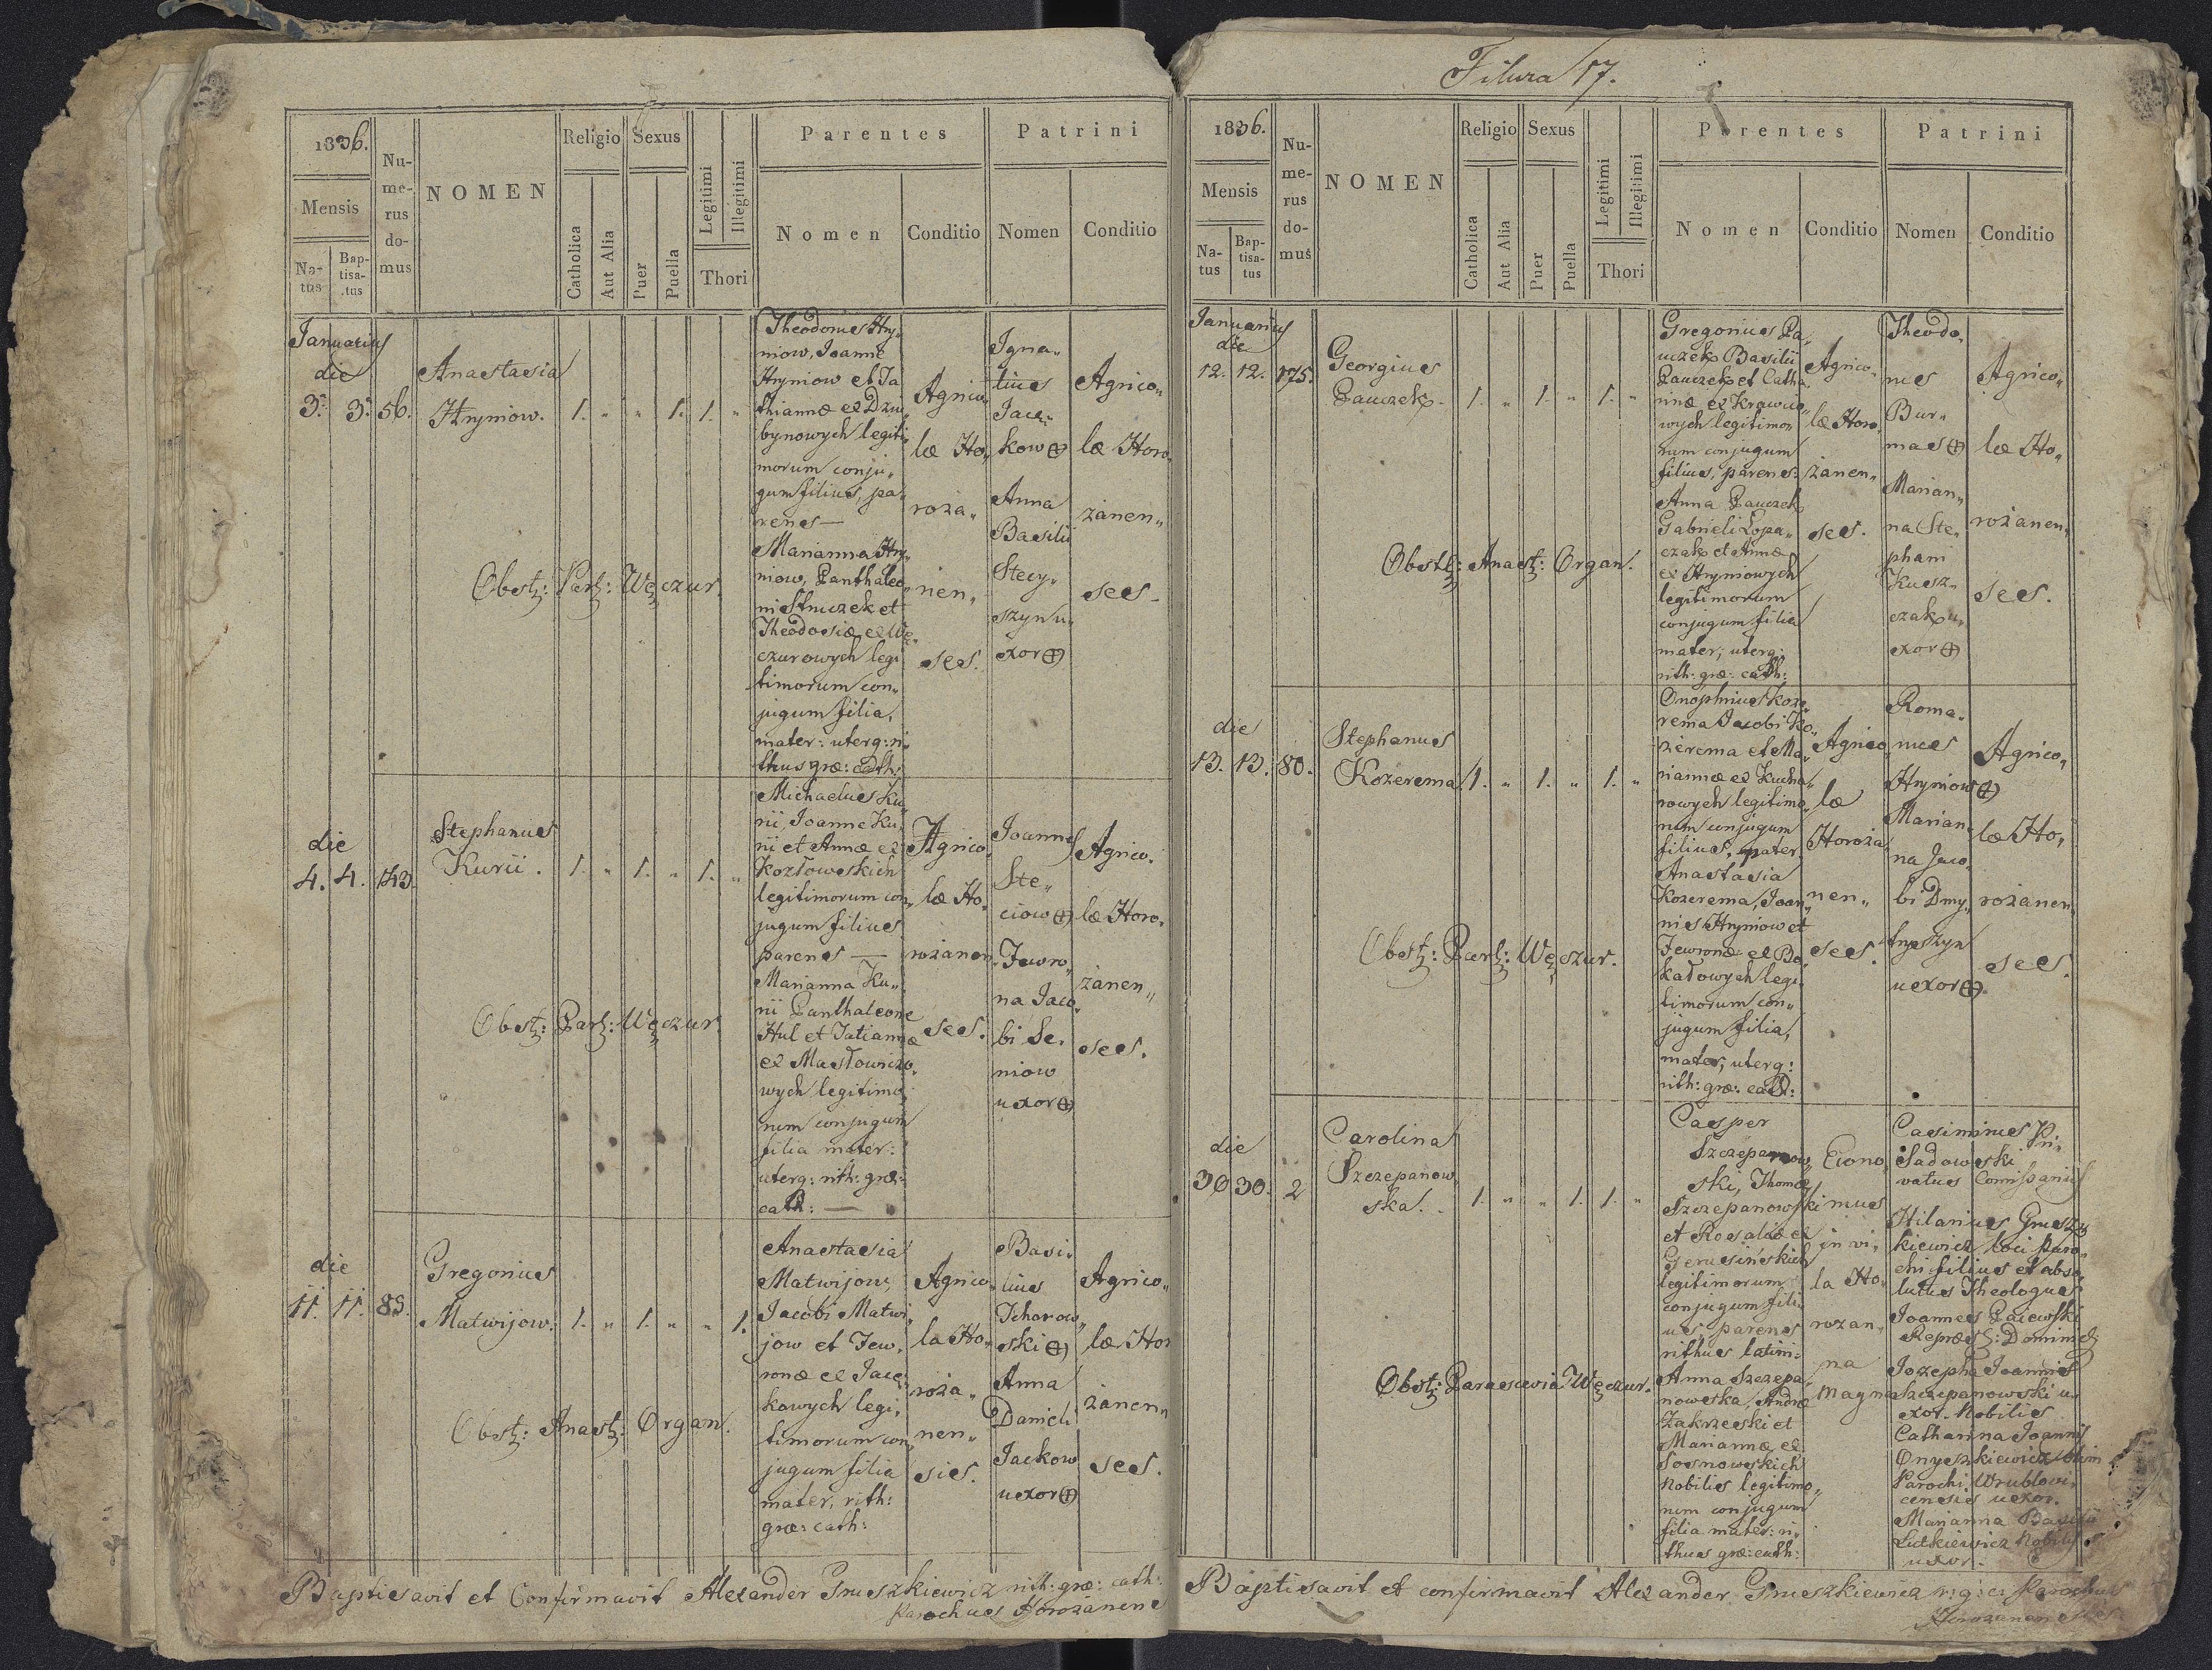 1836.
Mensis
Na-
tus
Bap-
tisa-
tus
Nu-
me-
rus
do-
mus
NOMEN
Religio
Catholica
Aut Alia
Sexus
Puer
Puella
Legitimi
Illegitimi
Thori
Parentes
Nomen
Conditio
Patrini
Nomen
Conditio
Januarius
die
3. 3. 56.
Anastasia
Hryniow.
1. „ „ 1. 1. „
Theodorus Hry„
niow, Joanne
Hryniow et Ta
thiannæ ex Dziu„
bynowych legiti„
morum conju„
gum filius, pa„
rens —
Marianna Hry„
niow, Panthaleo„
ni Struczek et
Theodosiæ ex Wę„
czurowych legi
timorum con„
jugum filia,
mater: uterq: ri„
thus græ: cath:
Agrico„
læ Ho„
roża„
nen„
ses.
Igna„
tius
Jac„
kow
Anna
Basilii
Stecy„
szyn u„
xor
Agrico„
læ Horo„
żanen„
ses
Obst: Par: Węczur.
die
4. 4. 143.
Stephanus
Kurii.
1. „ 1. „ 1. „
Michaelus Ku„
rii, Joanne Ku„
rii et Annæ ex
Kozłowskich
legitimorum con„
jugum filius
parens —
Marianna Ku„
rii Panthaleone
Hul et Tatiannæ
ex Masłowiczo„
wych legitimo„
rum conjugum
filia mater:
uterq: rith: græ:
cath: —
Agrico„
læ Ho„
rożanen„
ses.
Joannes
Ste„
ciow
Jewro„
na Jaco„
bi Se„
niow
uxor
Agrico„
læ Horo„
żanen„
ses.
Obst: Par: Węczur
die
11. 11. 85.
Gregorius
Matwijow.
1. „ 1. „ „ 1.
Anastasia
Matwijow,
Jacobi Matwi„
jow et Jew„
ronæ ex Jac„
kowych legi„
timorum con„
jugum filia
mater, rith:
græ: cath:
Agrico„
la Ho„
roża„
nen„
sis.
Basi„
lius
Tchorow„
ski
Anna
Danieli
Jackow
uxor
Agrico„
læ Hor
żanen„
ses.
Obst: Anast: Organ.
Baptisavit et Confirmavit Alexander Gruszkiewicz rith: græ: cath:
Parochus Horożanens
Filura 17.
1836.
Mensis
Na-
tus
Bap-
tisa-
tus
Nu-
me-
rus
do-
mus
NOMEN
Religio
Catholica
Aut Alia
Sexus
Puer
Puella
Legitimi
Illegitimi
Thori
Parentes
Nomen
Conditio
Patrini
Nomen
Conditio
Januarius
die
12. 12. 175.
Georgius
Pauczek
1. „ 1. „ 1. „
Gregorius Pa„
uczek Basilii
Pauczek et Catha„
rinæ ex Krawco„
wych legitimo„
rum conjugum
filius, parens:
Anna Pauczek
Gabrieli Łopa„
czak et Annæ
ex Hryniowych
legitimorum
conjugum filia
mater; uterq:
rith: græ: cath:
Agrico„
læ Horo„
żanen„
ses.
Theodo„
rus
Bur„
mas
Marian„
na Ste„
phani
Kusz„
czak u„
xor
Agrico„
læ Ho„
rożanen„
ses.
Obst: Anast: Organ.
die
13. 13. 80.
Stephanus
Kożerema
1. „ 1. „ 1. „
Onophrius Koze„
rema Jacobi Ko„
żerema et Ma„
riannæ ex Kucha„
rowych legitimo„
rum conjugum
filius, pater
Anastasia
Kozerema, Joan„
nis Hryniow et
Jewronæ ex Bo„
kałowych legi„
timorum con„
jugum filia,
mater; uterq:
rith: græ: cath:
Agrico„
læ
Horoża„
nen„
ses.
Roma„
nus
Hryniow
Marian„
na Jaco„
bi Dmy„
tryszyn
uxor
Agrico„
læ Ho„
rożanen„
ses.
Obst: Par: Węczur.
die
30 30. 2
Carolina
Szczepanow„
ska.
1. „ „ 1. 1. „
Casper
Szczepanow„
ski, Thomæ
Szczepanowski
et Rosaliæ ex
legitimorum
conjugum fili„
us, parens
rithus latini:
Anna Szczepa„
nowska, Andræ
Zakrzeski et
Mariannæ ex
Sosnowskich
Nobilis legitimo„
rum conjugum
filia mater: ri„
thus græ: cath:
Econo„
mus
in vi„
la Ho„
rozan„
na
magna
Casimirus Pri„
Sadowski
vatus Comissarius
Hilarius Grusz„
kiewicz loci Paro„
chi filius et abso„
lutus Theologus
Joannes Gajewski
Repræs: Dominii
Jozepha Joannis
Szczepanowski u„
xor. Nobilis
Catharina Joannis
Onyszkiewicz olim
Parochi Wrublowi„
censis uxor.
Marianna Basilii
Lutkiewicz Nobilis
uxor.
Obst: Parascevia Węczur.
Baptisavit et confirmavit Alexander Gruszkiewicz r: g: c: Parochus
Horozanensis